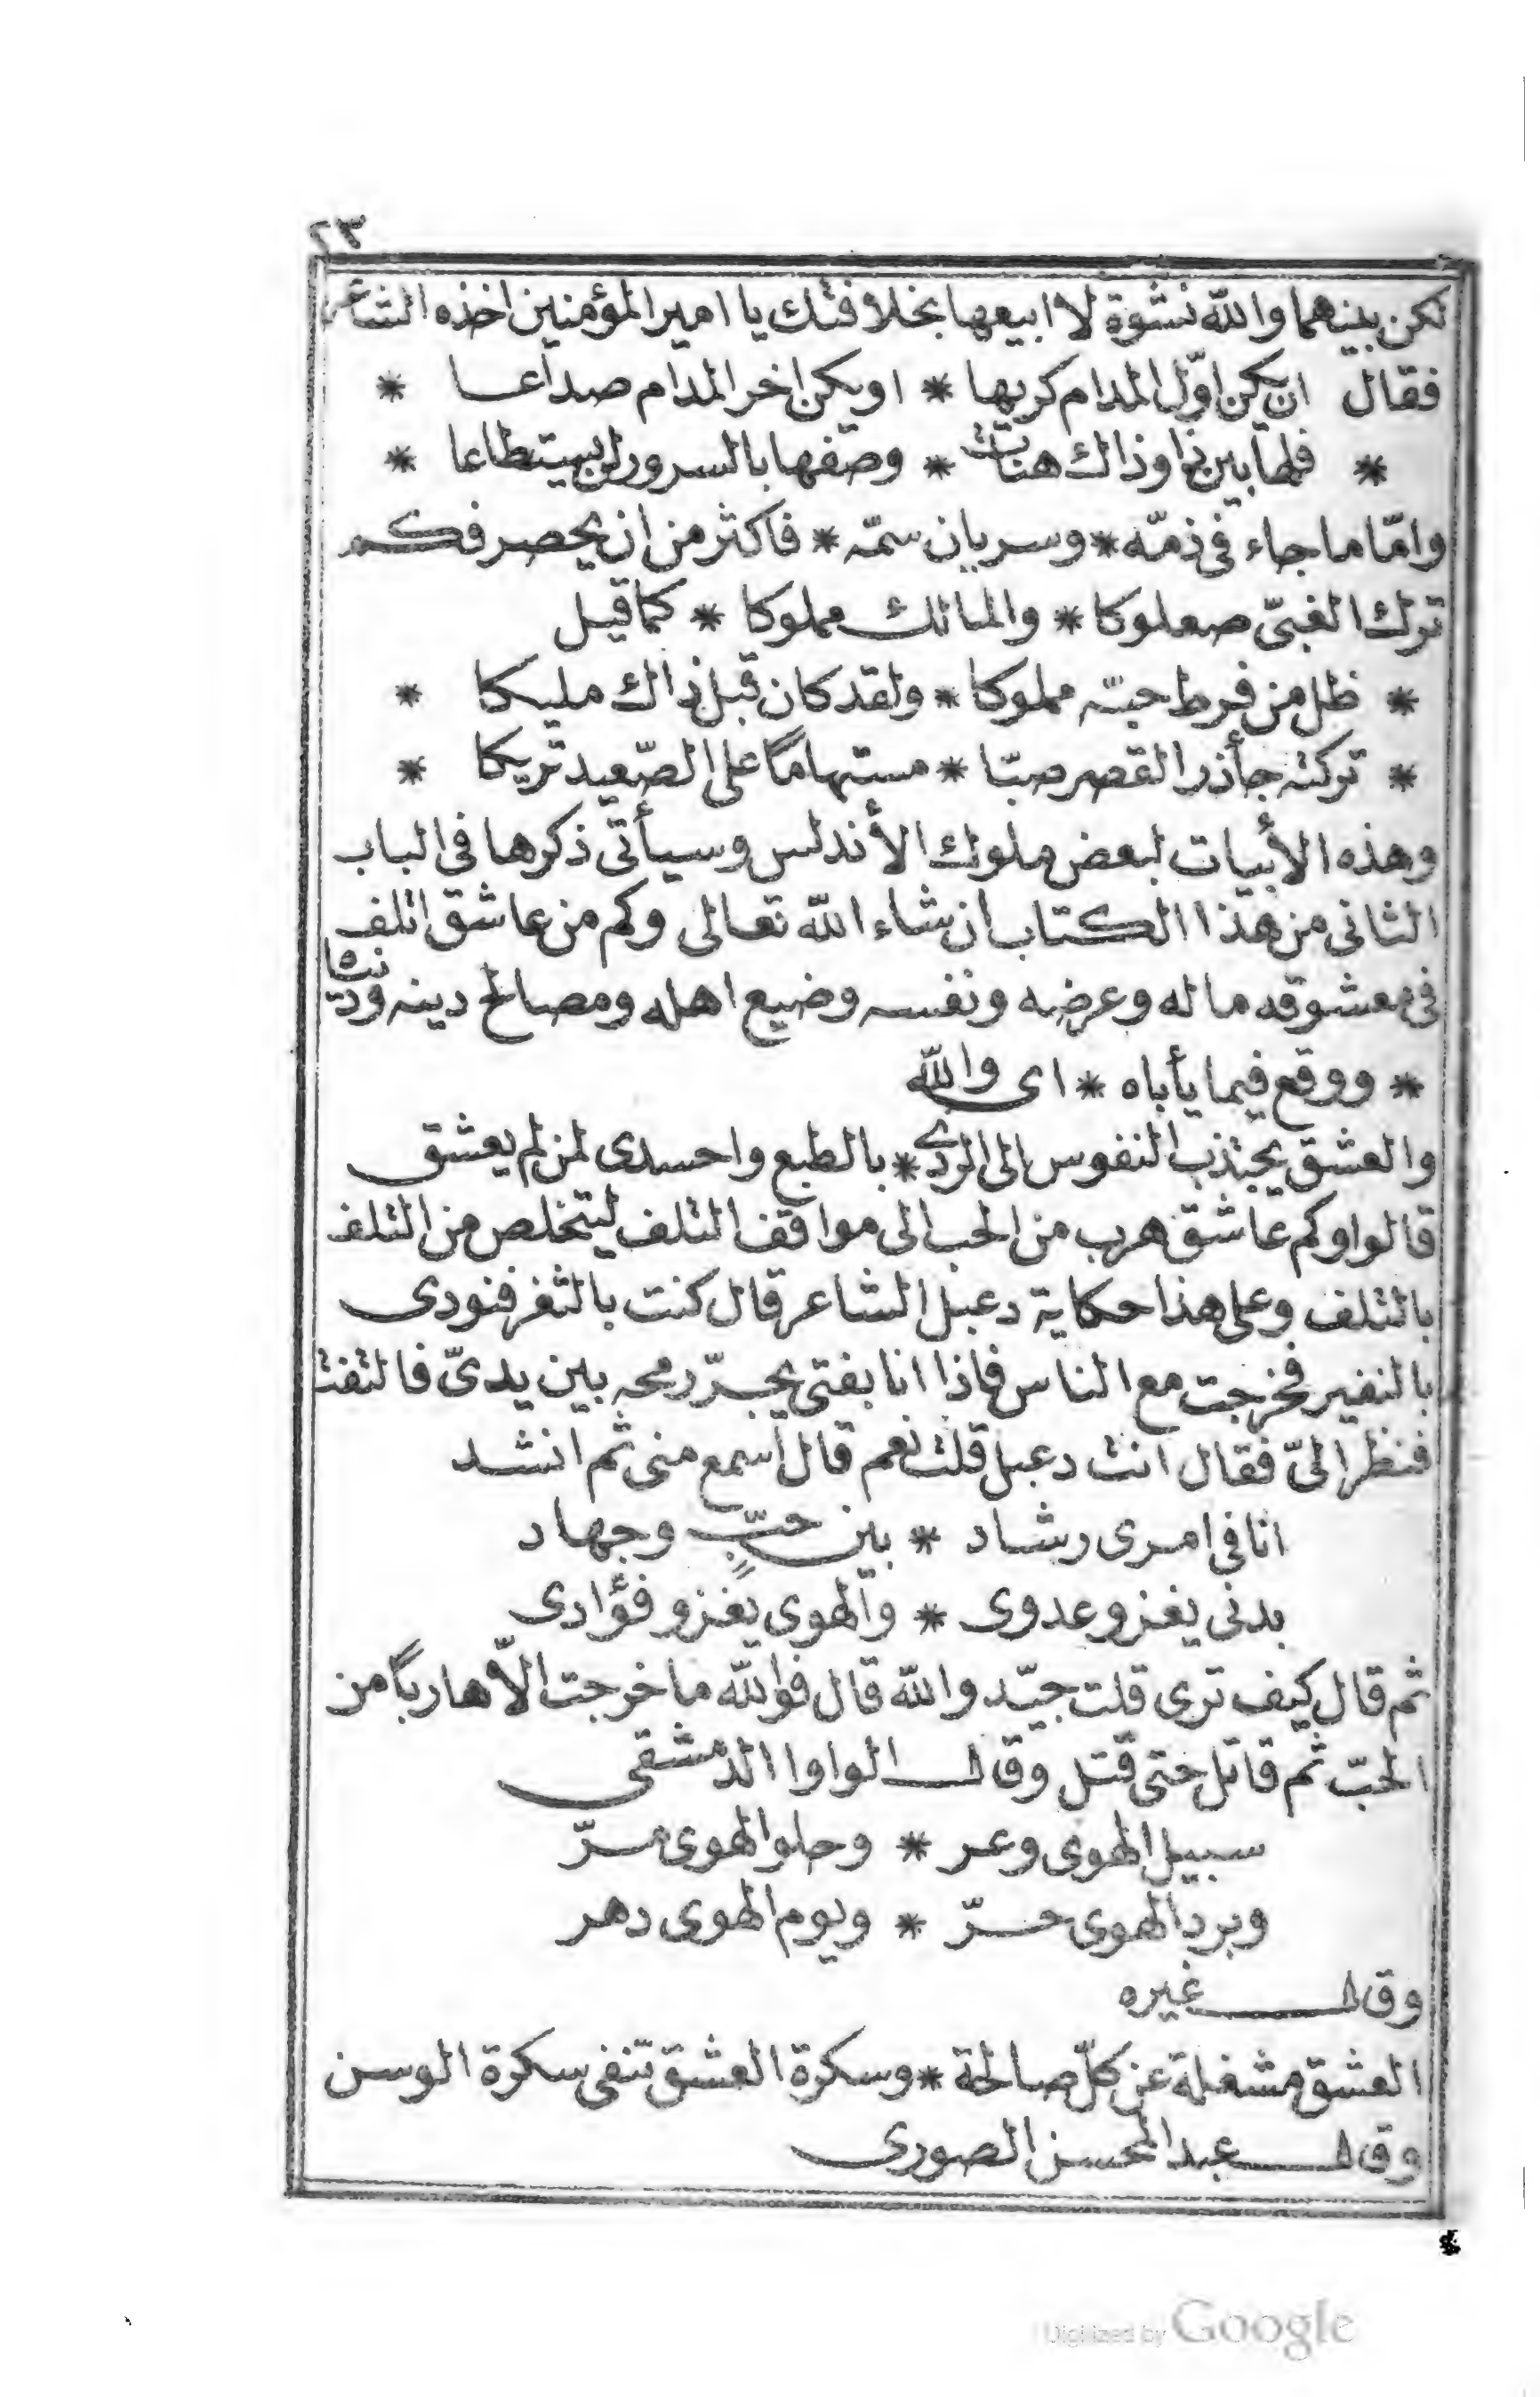 ٢٣
لكن بينهما والله نشوة لا ابيعها بخلافتك يا امير المؤمنين اخذه الشاعر
فقال ان يكن اوّل المدام كريها * او يكن اخر المدام صداعا *
* فلما بين ذا وذاك هنات * وصفها بالسرور لن يستطاعا *
وامّا ما جاء فى ذمّه * وسريان سمّه * فاكثر من ان يحصر فكم
ترك الغبىّ صعلوكا * والمالك مملوكا * كما قيل
* ظل من فرط حبّه مملوكا * ولقد كان قبل ذاك مليكا *
* تركته جأذر القصر صبّا * مستهامًا على الصّعيد تريكا *
وهذه الأبيات لبعض ملوك الأندلس وسيأتى ذكرها فى الباب
الثانى من هذا الكتاب ان شاء الله تعالى وكم من عاشق اتلف
فى معشوقه ماله وعرضه ونفسه وضيع اهله ومصالح دينه ودنياه
* ووقع فيما يأباه * اى والله
والعشق يجتذب النفوس الى الردى * بالطبع واحسدى لمن لم يعشق
قالوا وكم عاشق هرب من الحب الى مواقف التلف ليتخلص من التلف
بالتلف وعلى هذا حكاية دعبل الشاعر قال كنت بالثغر فنودى
بالنفير فخرجت مع الناس فاذا انا بفتى يجرّ رمحه بين يدىّ فالتفت
فنظر الىّ فقال انت دعبل قلت نعم قال اسمع منى ثم انشد
انا فى امرى رشاد * بين حبٍّ وجهاد
بدنى يغزو عدوى * والهوى يغزو فؤادى
ثم قال كيف ترى قلت جيّد والله قال فوالله ما خرجت الّا هاربًا من
الحبّ ثم قاتل حتى قتل وقال الواوا الدمشقى
سبيل الهوى وعر * وحلو الهوى مرّ
وبرد الهوى حرّ * ويوم الهوى دهر
وقال غيره
العشق مشغلة عن كلّ صالحة * وسكرة العشق تنفى سكرة الوسن
وقال عبد المحسن الصورى
Digitized by Google